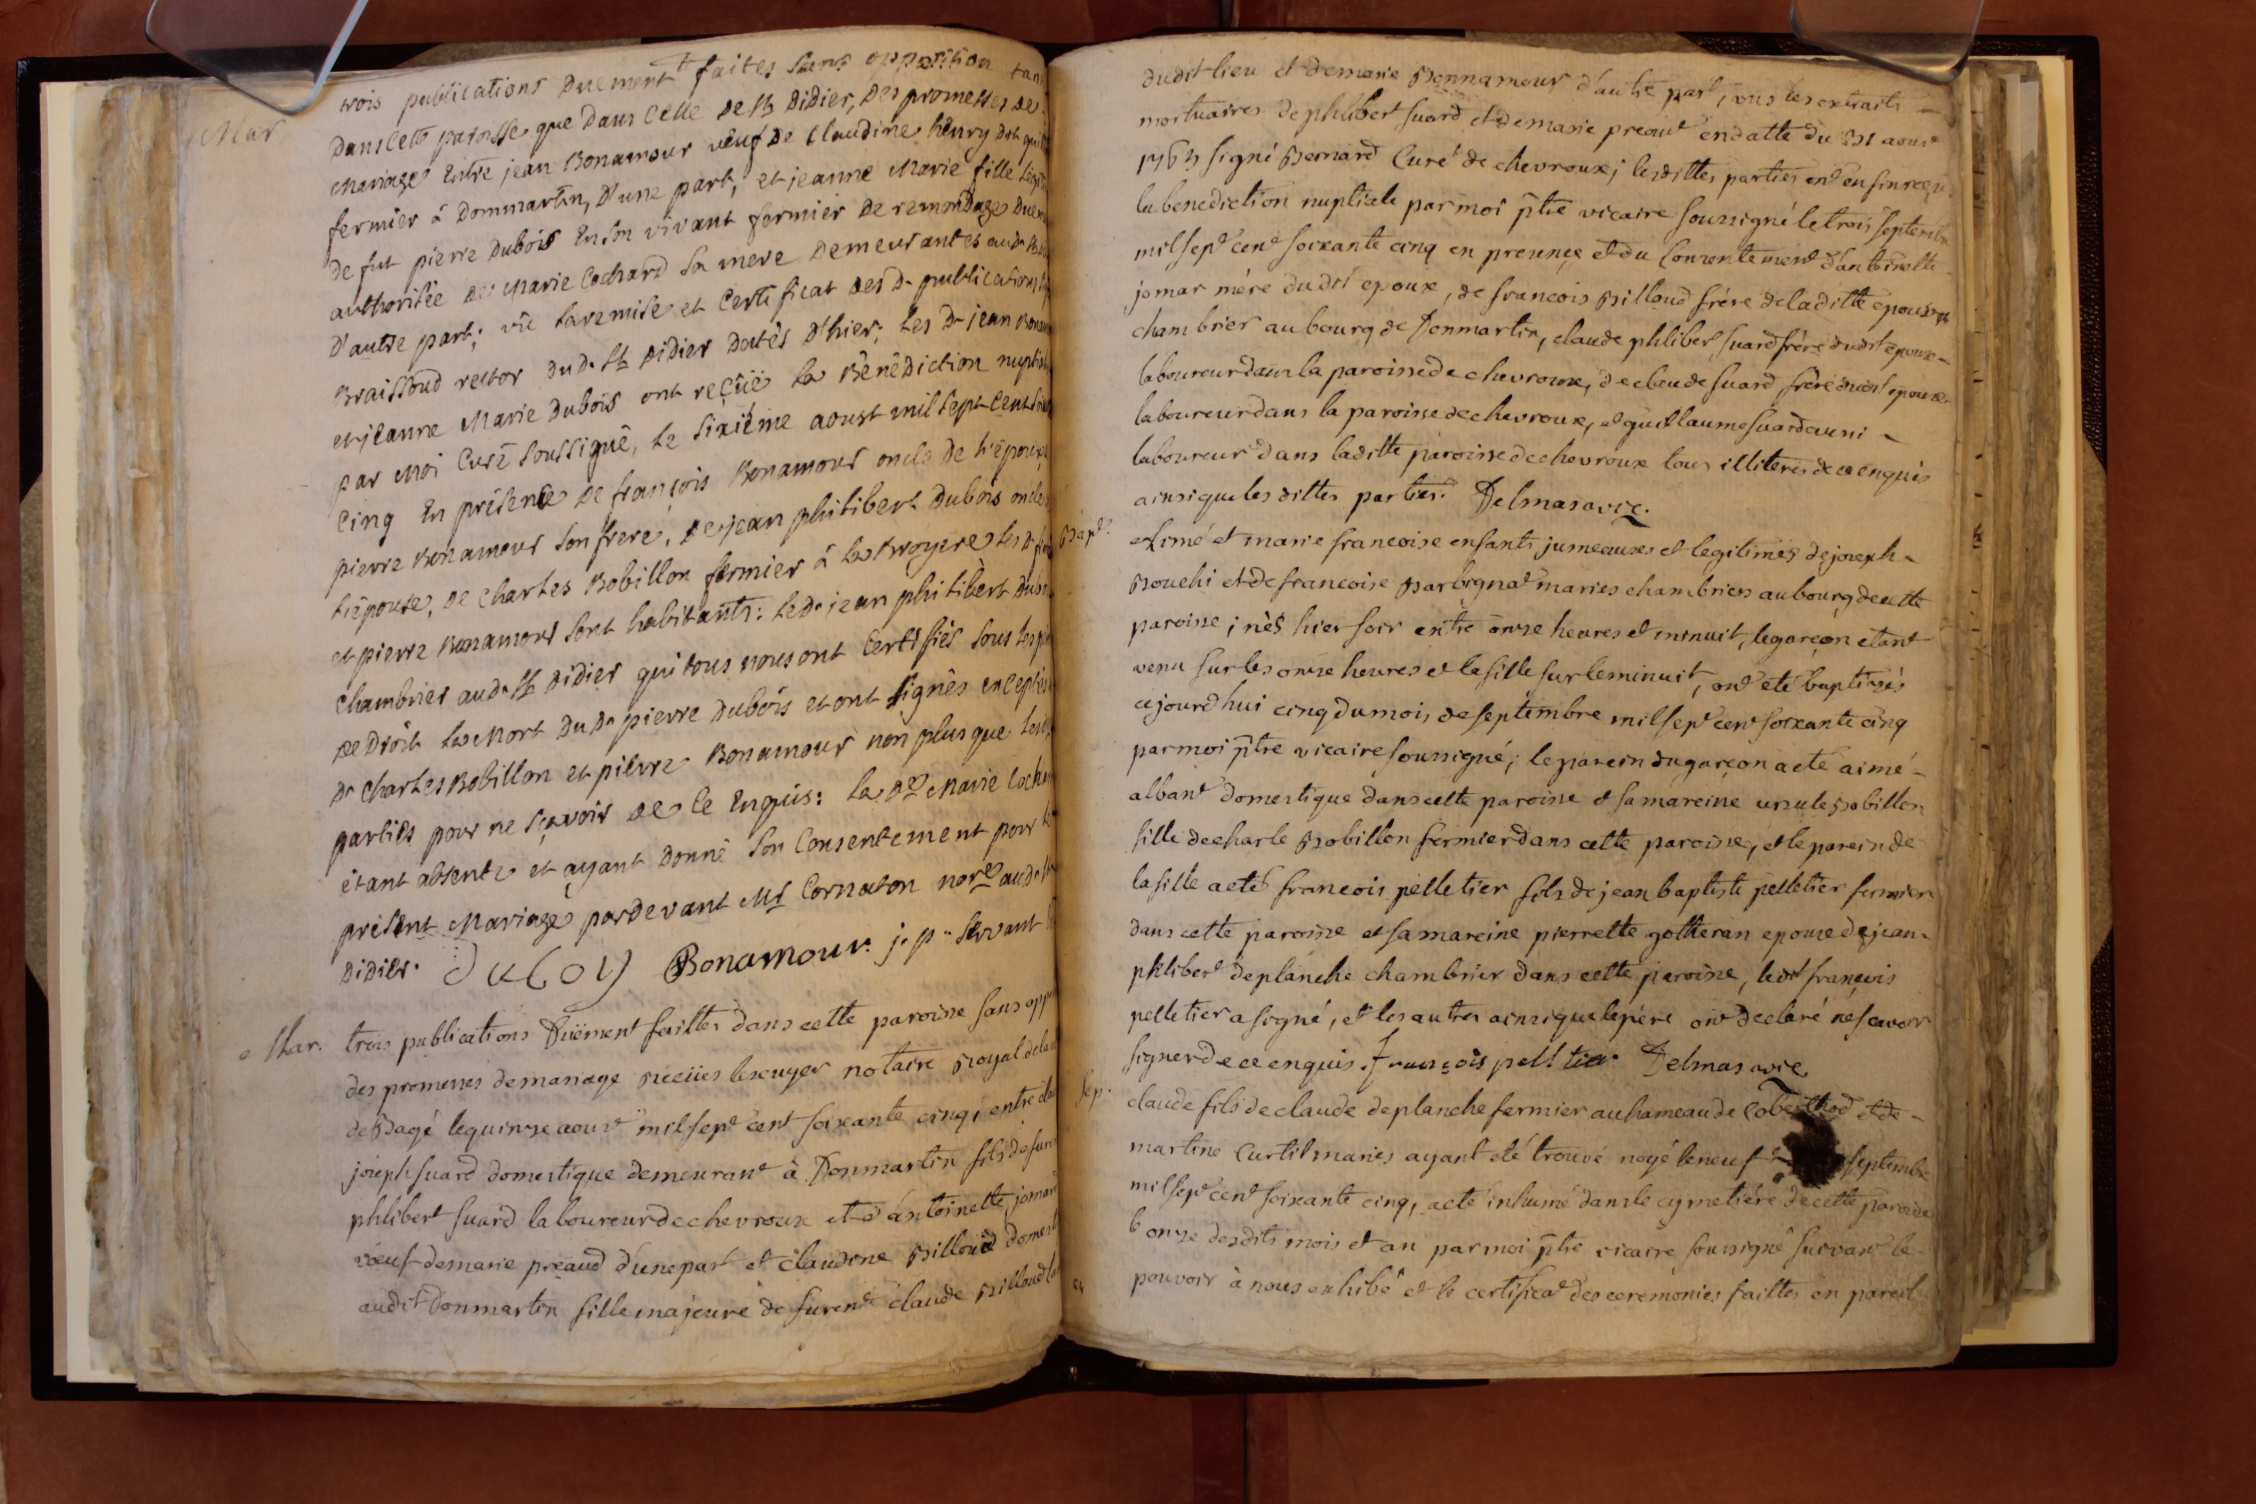 trois publications duement faites sans opposition tan
Mar
dans cette paroisse que dans celle de St didier, des promesses de
mariage entre jean Bonamour veuf de Claudine henry dit
fermier à dommartin, d'une part, et jeanne Marie fille
de fut pierre dubois en son vivant fermier de remondage
authorisée de Marie Cochard sa mere demeurantes aud.
d'autre part; vû la remise et Certificat des d. publications
Braissoud rector dud. St didier datés d'hier; les d. jean
et jeanne Marie dubois ont reçüe la Bénédiction
par moi Curé soussigné, le sixiéme aoust mil sept cent
cinq en présence de françois Bonamour oncle de l'époux,
pierre Bonamour son frere, de jean philibert dubois oncle
l'épouse, de charles Bobillon fermier à la troyere les d.
et pierre Bonamour sont habitants: le d. jean philibert
chambrier aud. St didier qui tous nous ont Certifiés sous les
de droit la mort du d. pierre dubois et ont signés exceptés
d. charles Bobillon et pierre Bonamour non plus que les
parties pour ne sçavoir de ce enquis: la d. Marie
étant absente et ayant donné son Consentement pour le
présent Mariage pardevant Mr Cornaton nore aud.
didier. duboy Bonamour. j. p. servant
Mar.
trois publications Düement faittes dans cette paroisse sans
des promesses de mariage recües lescuyer notaire Royal de la
de Bagé le quinze aout mil sept cent soixante cinq; entre
joseph suard domestique demeurant à Donmartin fils de
phlibert suard laboureur de chevroux et d'antoinette jomar
vœuf de marie preaud d'une part et claudine Billoud
audit donmartin fille majeure de claude Billoud
dudit lieu et demarie Bonnamour d'autre part, vus les extraits
mortuaires de phlibert suard et de marie preaut en datte du aout
signé Bernard Curé de chevroux; lesdittes parties ont enfin reçu
la benediction nuptiale par moi ptre vicaire soussigné le trois septembre
mil sept cent soixante cinq en presence et du consentement d'antoinette
jomar mére dudit epoux, de francois Billoud frére de laditte epouse
chambrier au bourg de Donmartin, claude phlibert suard frére dudit epoux
laboureur dans la paroisse de chevroux, de claude suard frére dudit epoux
laboureur dans la paroisse de chevroux, et guillaume suard aussi
laboureur dans laditte paroisse de chevroux tous illiteres de ce enquis
ainsi que les dittes parties. Delmas vic.
Bapt.
Aimé et marie francoise enfants jumeaux et legitimes de joseph
Bouchi et de francoise Barbignat mariés chambriers au bourg de cette
paroisse; nés hier soir entre onze heures et minuit, le garçon etant
venu sur les onze heures et la fille sur le minuit, ont eté baptisés
cejourd'hui cinq du mois de septembre mil sept cent soixante cinq
par moi ptre vicaire soussigné; le parein du garçon a eté aimé
albant domestique dans cette paroisse et sa mareine ursule Bobillon
fille de charle Bobillon fermier dans cette paroisse, et le parein de
la fille a eté francois pelletier fils de jean baptiste pelletier fermier
dans cette paroisse et sa mareine pierrette gotheran epouse de jean
phlibert deplanche chambrier dans cette paroisse, ledit françois
pelletier a signé, et les autres ainsi que le pére ont declaré ne scavoir
signer de ce enquis. françois pelltier Delmas vic.
sep.
claude fils de claude deplanche fermier au hameau de et de
martine Curtil mariés ayant eté trouvé noyé le neuf septembre
mil sept cent soixante cinq, a eté inhumé dans le cymetiére de cette paroisse
le onze desdits mois et an par moi ptre vicaire soussigné suivant le
pouvoir à nous exhibé et le certificat des ceremonies faittes en pareil